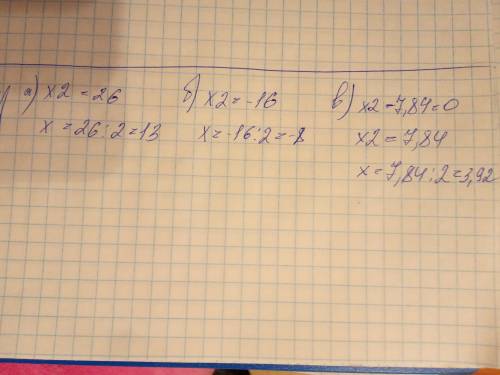 а) x2 = 26
x = 26:2=13
б) x2 = -16
x = -16:2=-8
в) x2-7,84=0
x2 = 7,84
x = 7,84:2=3,92